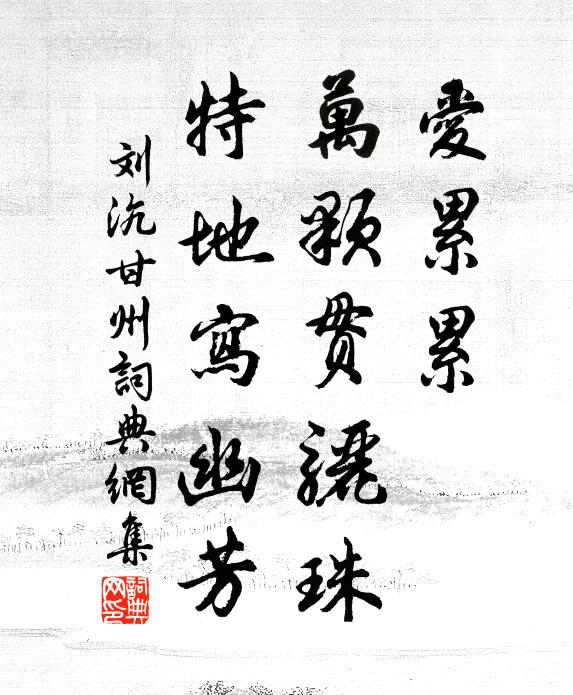 愛累累
萬顆貫驪珠
特地寫幽芳
刘沆甘州詞典網集
詞典网印